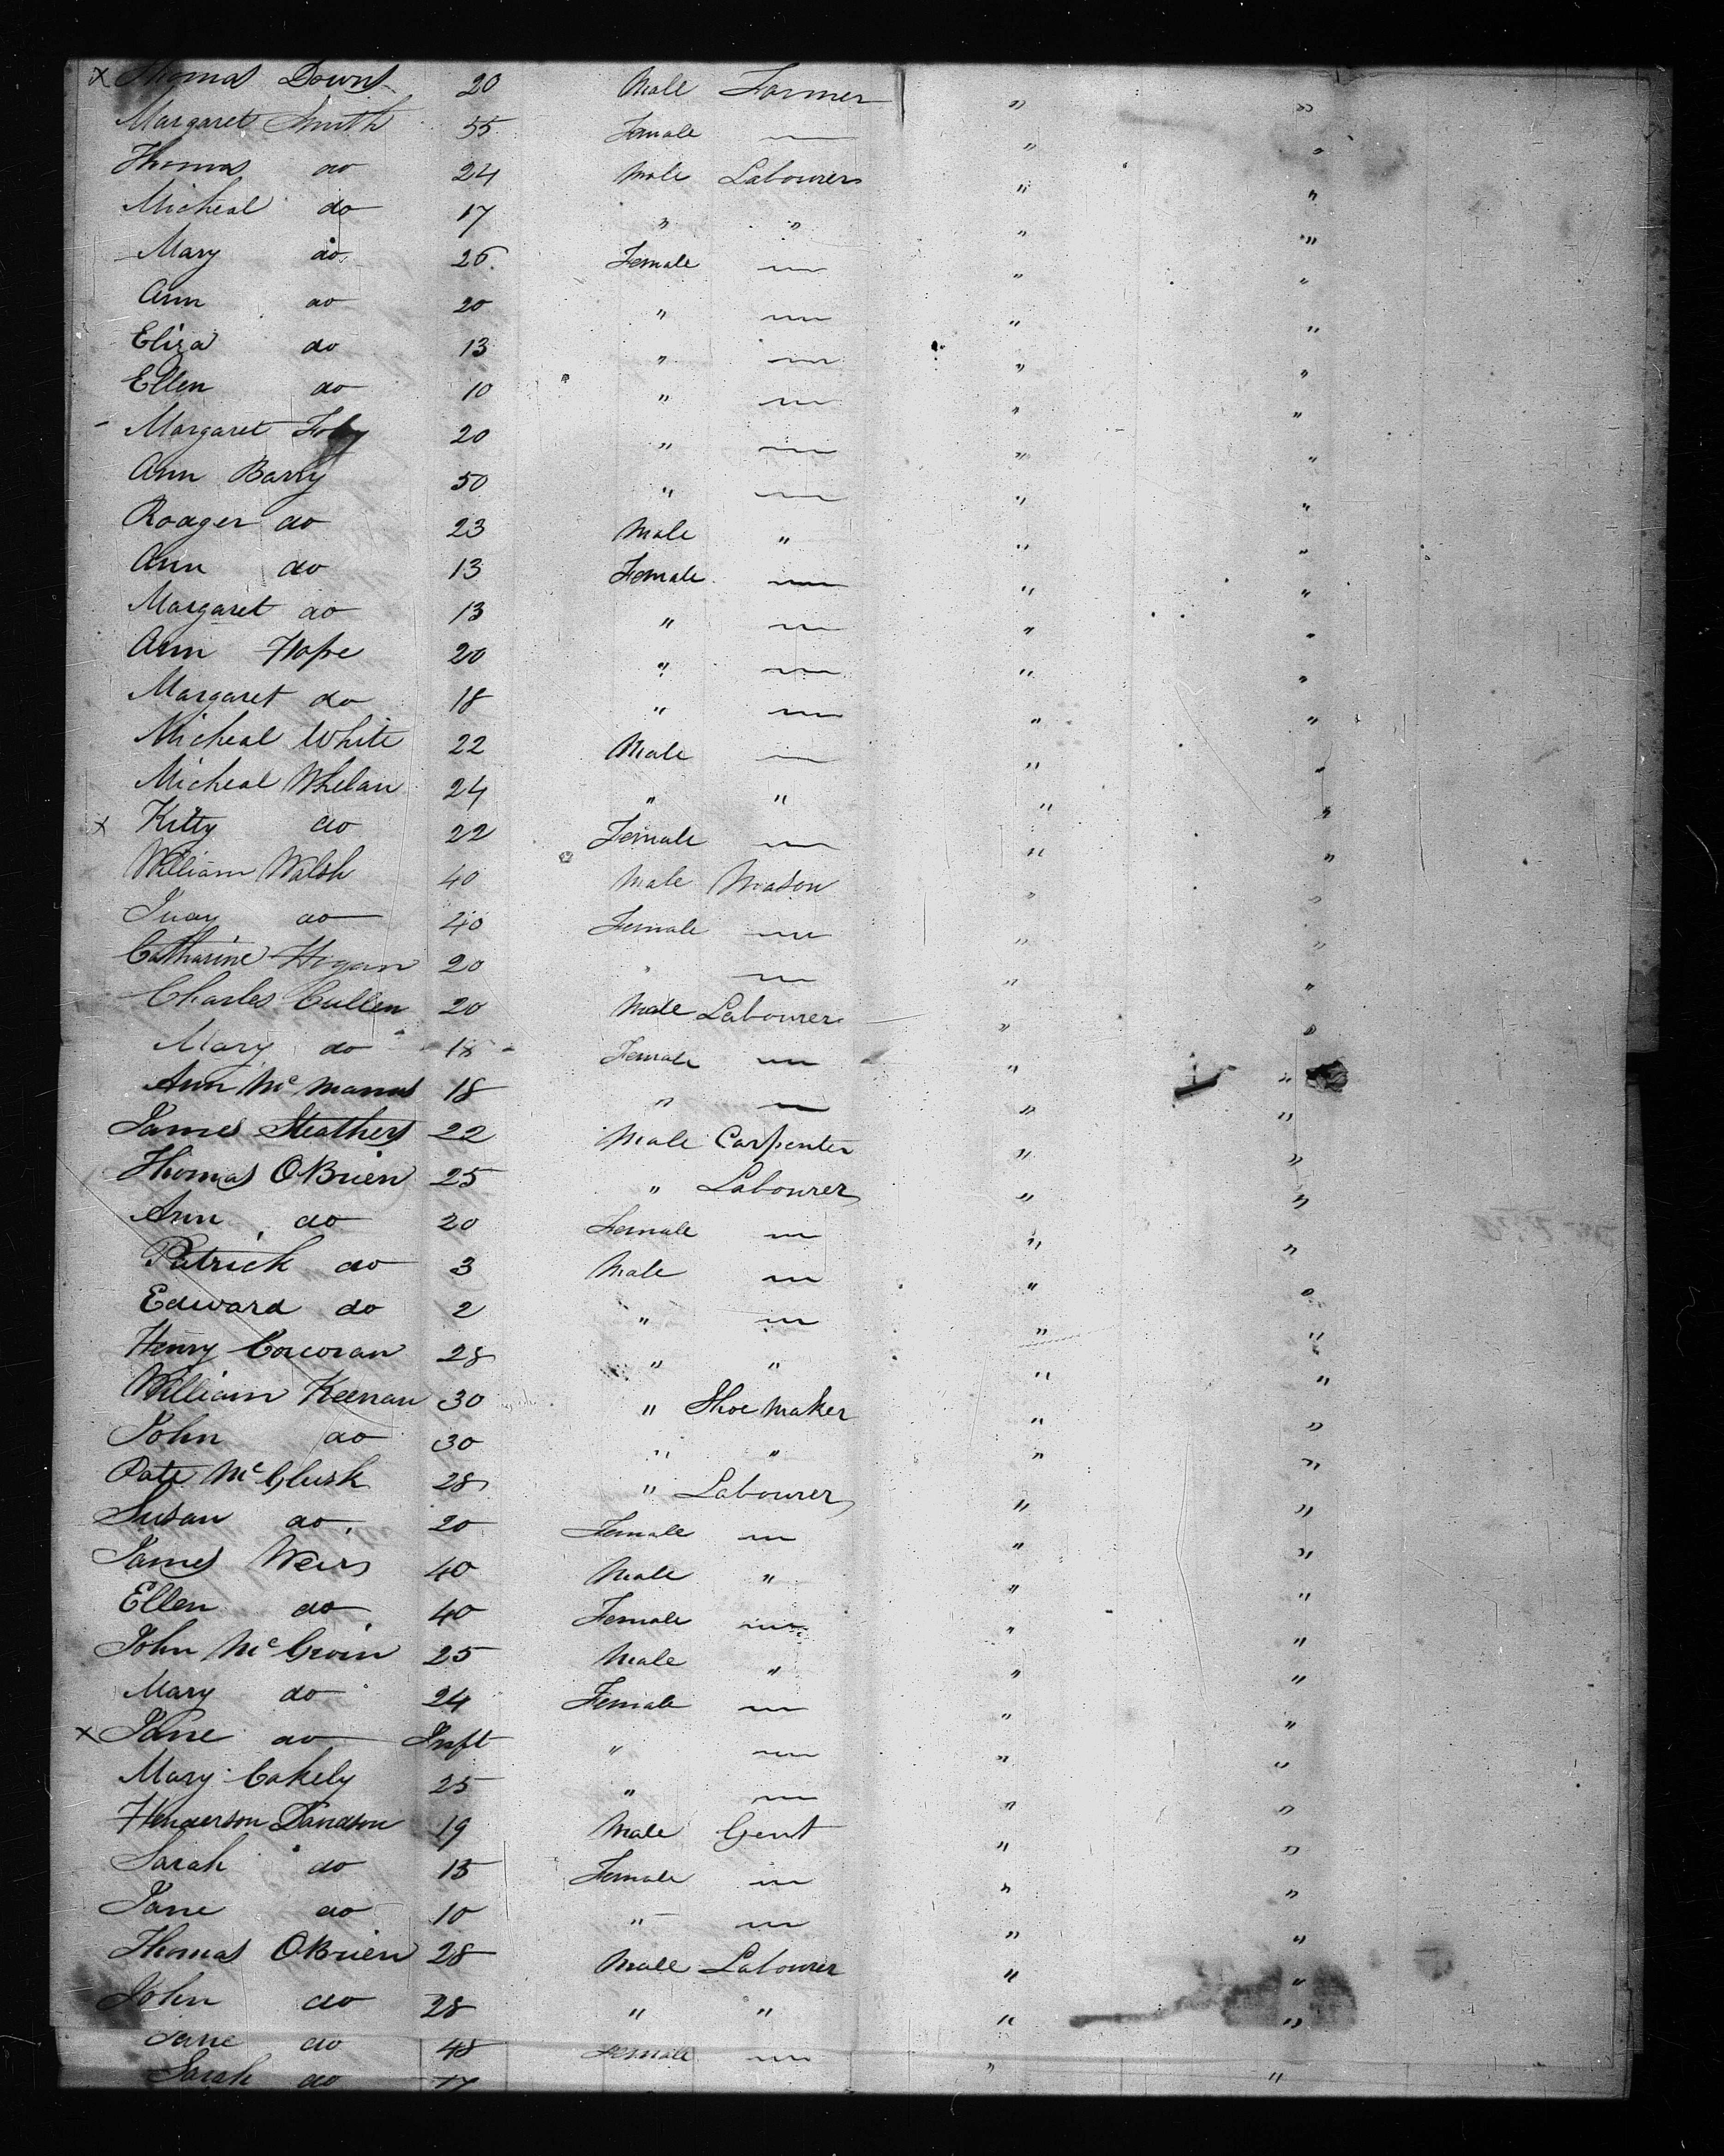 x Thomas Downs 20 Male Farmer " "
Margaret Smith 55 Female — " "
Thomas do 24 Male Labourer " "
Micheal do 17 " " " "
Mary do 26 Female — " "
Ann do 20 " — " "
Eliza do 13 " — " "
Ellen do 10 " — " "
- Margaret Foley 20 " — " "
Ann Barry 50 " — " "
Rodger do 23 Male " " "
Ann do 13 Female — " "
Margaret do 13 " — " "
Ann Hope 20 " — " "
Margaret do 18 " — " "
Micheal White 22 Male — " "
Micheal Whelan 24 " " " "
x Kitty do 22 Female — " "
William Walsh 40 Male Mason " "
Judy do 40 Female — " "
Catharine Hogan 20 " — " "
Charles Cullen 20 Male Labourer " "
Mary do 18 Female — " "
Ann McManus 18 " — " "
James Steathers 22 Male Carpenter " "
Thomas OBrien 25 " Labourer " "
Ann do 20 Female — " "
Patrick do 3 Male — " "
Edward do 2 " — " "
Henry Corcoran 28 " " " "
William Keenan 30 " Shoe Maker " "
John do 30 " " " "
Pat McClusk 28 " Labourer " "
Susan do 20 Female — " "
James Weir 40 Male " " "
Ellen do 40 Female — " "
John McGwin 25 Male " " "
Mary do 24 Female — " "
x Jane do Inft " — " "
Mary Cakely 25 " — " "
Henderson Davidson 19 Male Gent " "
Sarah do 15 Female — " "
Jane do 10 " — " "
Thomas OBrien 28 Male Labourer " "
John do 28 " " " "
Jane do 48 Female — " "
Sarah do 17 " "